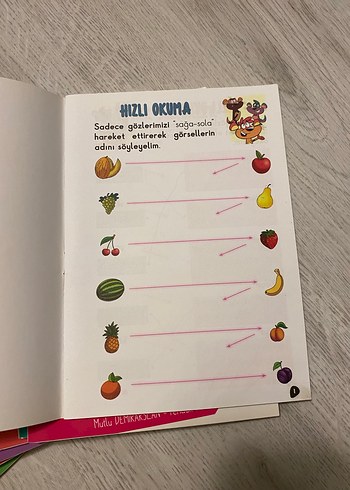 HIZLI OKUMA
Sadece gözlerimizi "sağa-sola"
hareket ettirerek görsellerin
adını söyleyelim.
1
Mutlu DEMİRAKSLAN